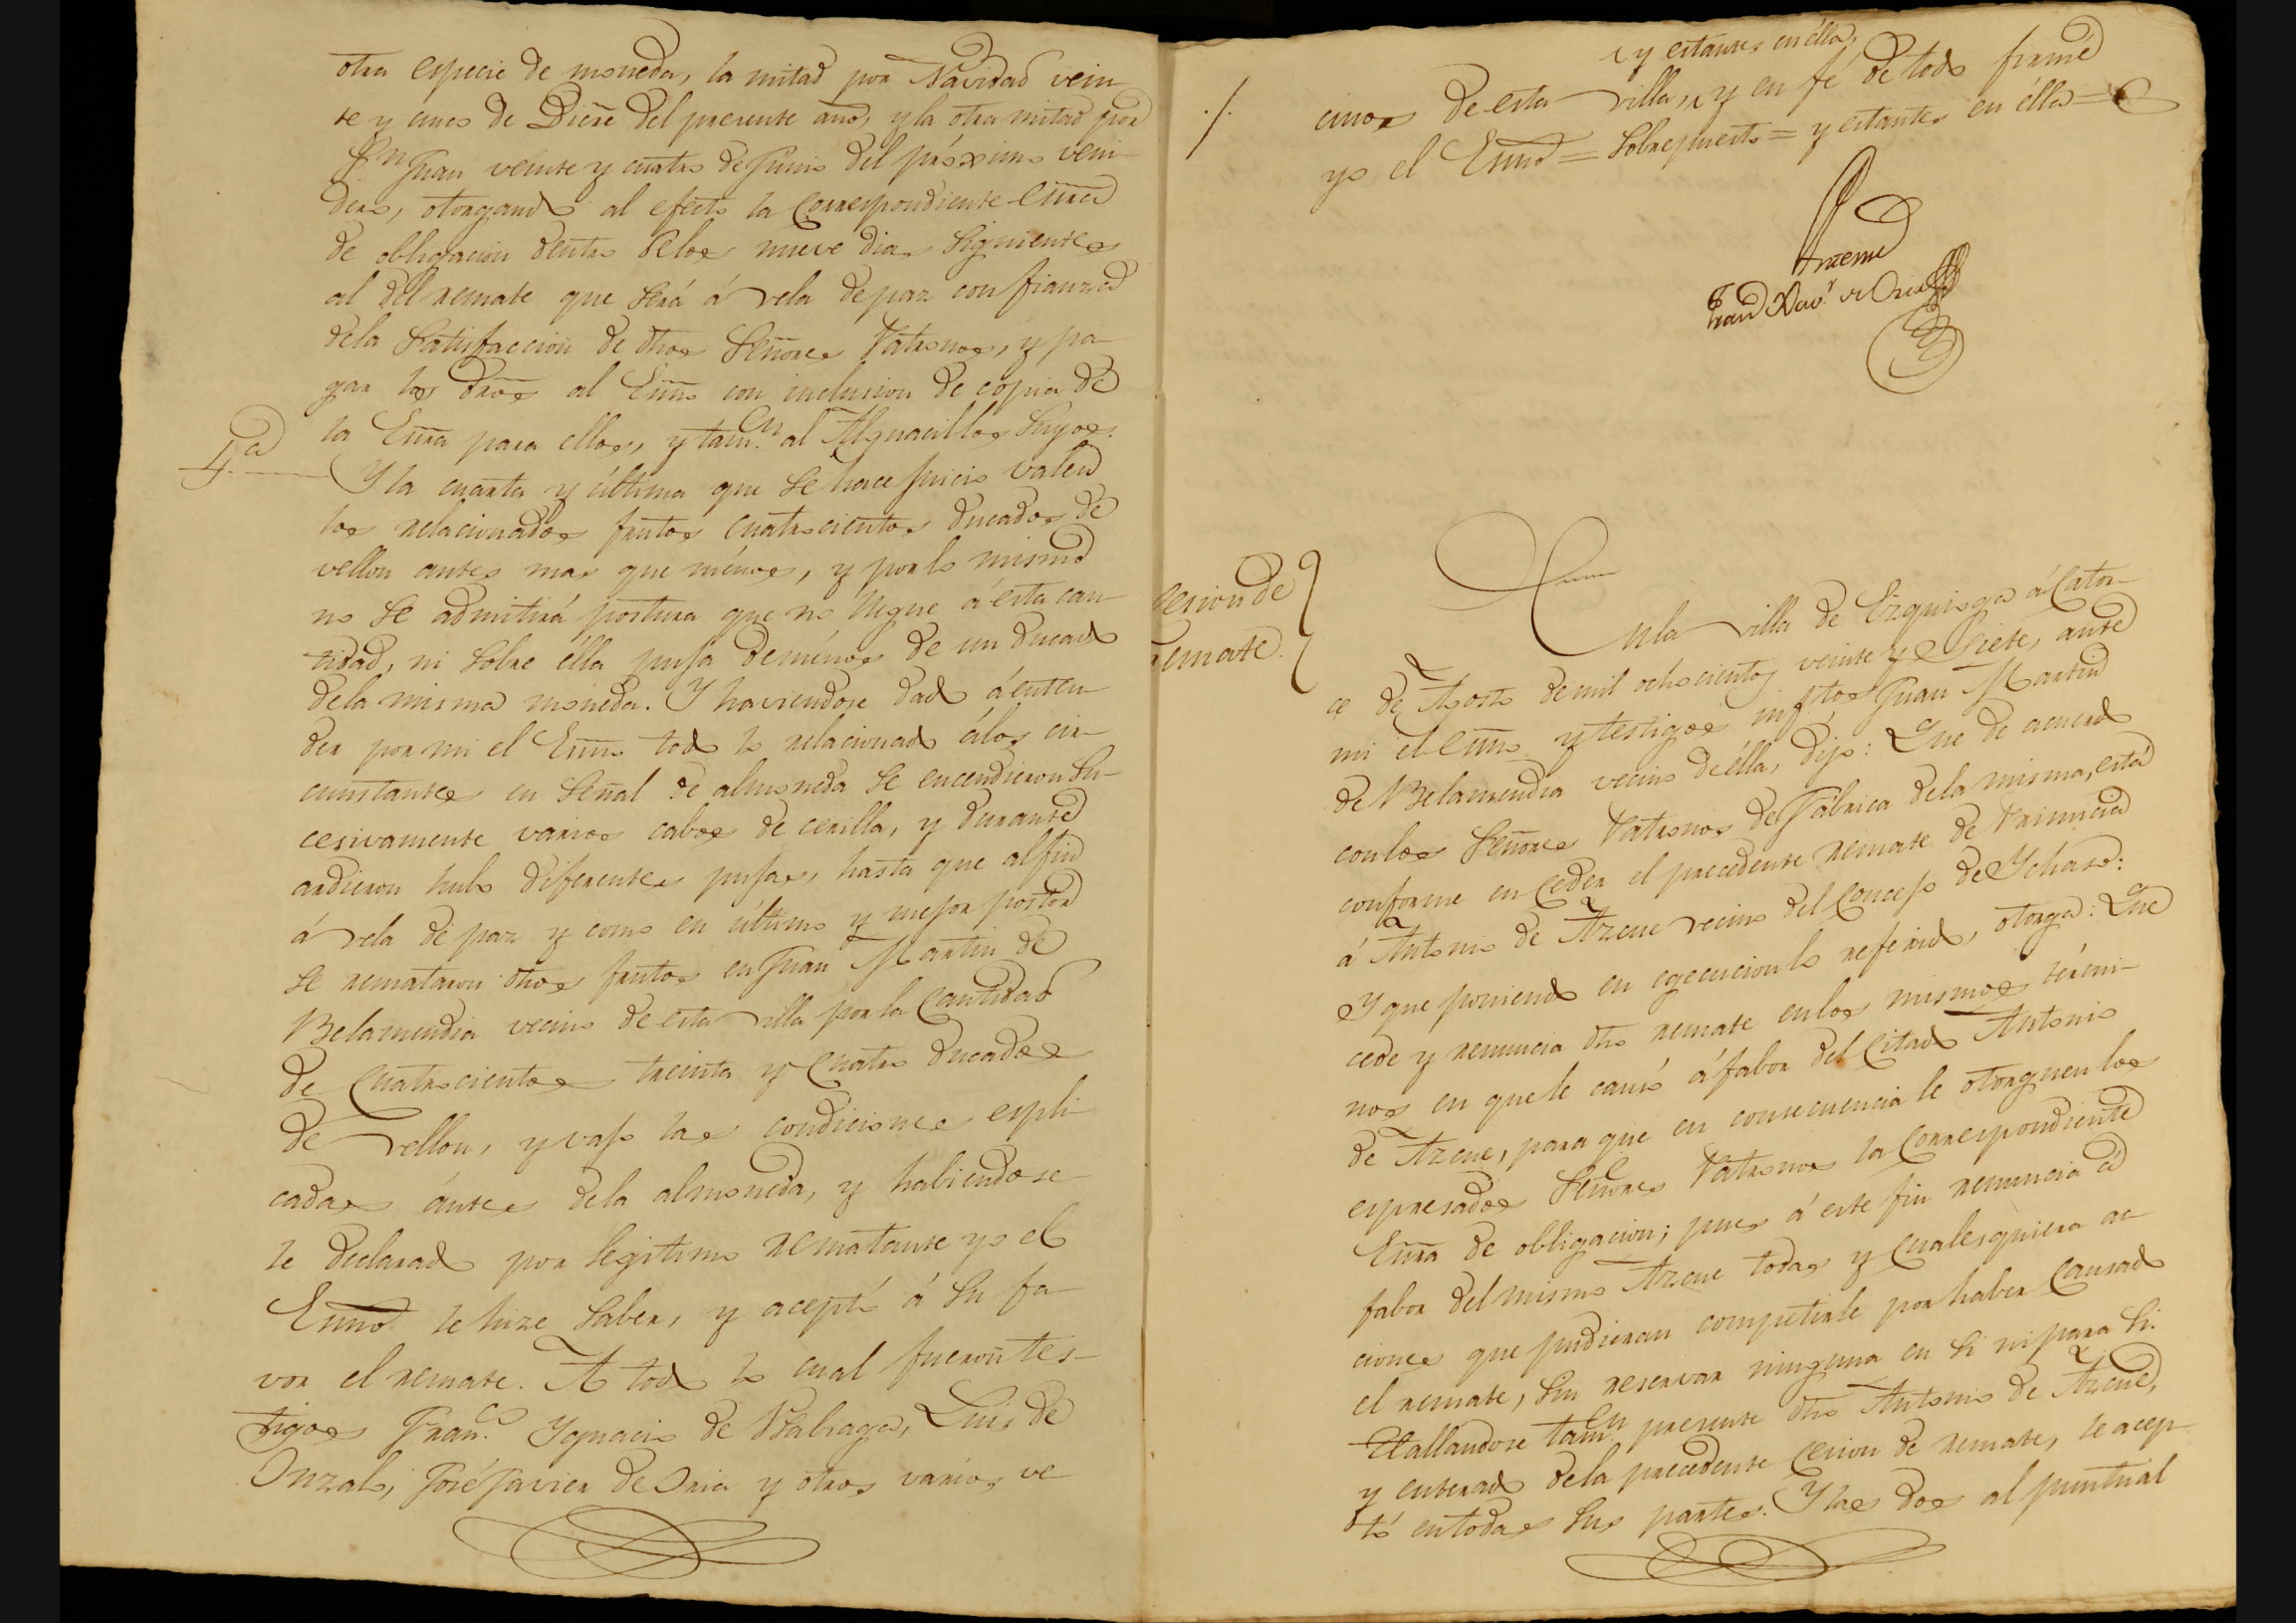 otra especie de moneda, la mitad por Navidad vein-
te y cinco de Dicre del presente año, y la otra mitad por
Sn Juan veinte y cuatro de Junio del próximo veni-
dero, otorgando al efecto la correspondiente essra
de obligacion dentro delos nueve dias siguientes
al del remate que será á vela de par con fianza
dela satisfaccion de dhos Señores Patronos, y pa-
gar los dros al Essno con inclusion de copia de
la Essra para ellos, y tamn al Alguacil los suyos.
4.a Y la cuarta y última que se hace juicio valen
los relacionados frutos cuatrocientos ducados de
vellon antes mas que ménos, y por lo mismo
no se admitirá postura que no llegue á esta can-
tidad, ni sobre élla puja de ménos de un ducado
dela misma moneda. Y haviendose dado á enten-
der por mi el Essno todo lo relacionado álos cir-
cunstantes en señal de almoneda se encendieron su-
cesivamente varios cabos de cerilla, y durante
ardieron hubo diferentes pujas, hasta que al fin
á vela de par y como en último y mejor postor
se remataron dhos frutos en Juan Martin de
Belamendia vecino de esta villa por la cantidad
de cuatrocientos treinta y cuatro ducados
de vellon, y vajo las condiciones espli-
cadas ántes dela almoneda, y habiendose-
le declarado por legitimo rematante yo el
Essno le hize saber, y aceptó á su fa-
vor el remate. A todo lo cual fueron tes-
tigos Franco Ygnacio de Alsaga, Luis de
Unzalo, José Javier de Oria y otros varios ve-
y estantes en élla,
./. cinos de esta villa, y en fé de todo firmé
yo el Essno = Sobrepuesto = y estantes en élla =
Ante mi
Fran Xavr de Oria
Cesion de
remate.
En la villa de Ezquioga á cator-
ce de Agosto de mil ochocientos veinte y siete, ante
mi el essno y testigos infrtos Juan Martin
de Belamendia vecino de élla, dijo: Que de acuerdo
con los Señores Patronos de Fábrica dela misma, está
conforme en ceder el precedente remate de Primicia
á Antonio de Azcue vecino del Concejo de Ychaso:
Y que poniendo en egecucion lo referido, otorga: Que
cede y renuncia dho remate en los mismos térmi-
nos en que le causó á fabor del citado Antonio
de Azcue, para que en consecuencia le otorguen los
espresados Señores Patronos la correspondiente
Essra de obligacion; pues á este fin renuncia á
fabor del mismo Azcue todas y cualesquiera ac-
ciones que pudieran competirle por haber causado
el remate, sin reservar ninguna en si ni para si.
Hallandose tamn presente dho Antonio de Azcue,
y enterado dela precedente cesion de remate, le acep-
tó en todas sus partes. Y los dos al puntual